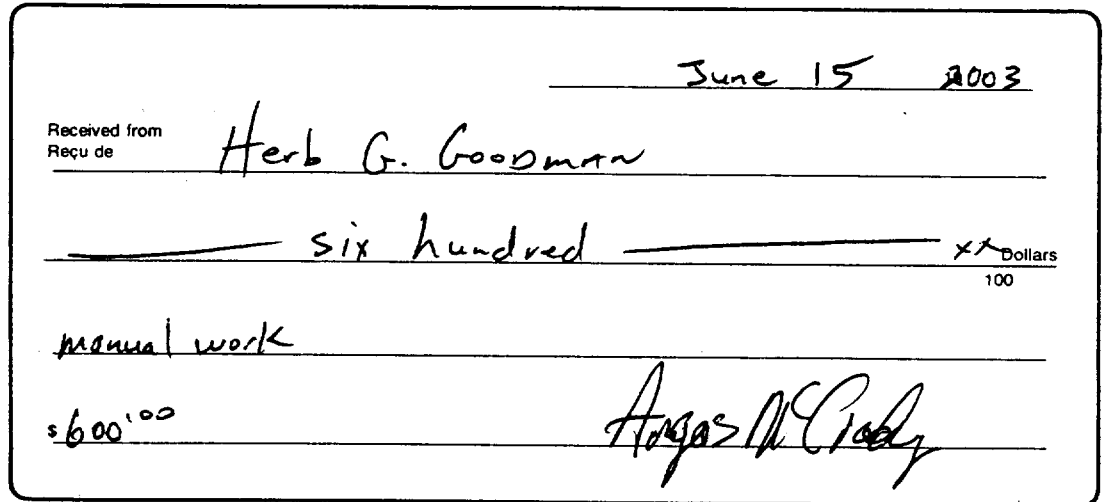 June 15 2003
Received from
Reçu de Herb G. GOODMAN
six hundred xx Dollars
100
manual work
$600.00
Angas McCrady